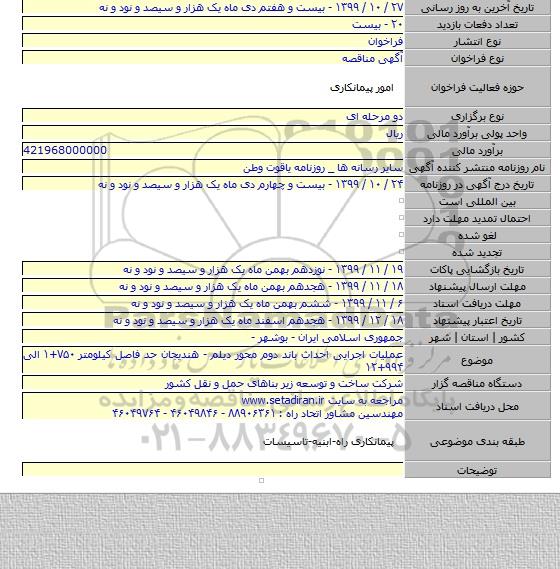 تاریخ آخرین به روز رسانی ۲۷ / ۱۰ / ۱۳۹۹ - بیست و هفتم دی ماه یک هزار و سیصد و نود و نه
تعداد دفعات بازدید ۲۰ - بیست
نوع انتشار فراخوان
نوع فراخوان آگهی مناقصه
حوزه فعالیت فراخوان امور پیمانکاری
نوع برگزاری دو مرحله ای
واحد پولی برآورد مالی ریال
برآورد مالی 421968000000
نام روزنامه منتشر کننده آگهی سایر رسانه ها _ روزنامه یاقوت وطن
تاریخ درج آگهی در روزنامه ۲۴ / ۱۰ / ۱۳۹۹ - بیست و چهارم دی ماه یک هزار و سیصد و نود و نه
بین المللی است
احتمال تمدید مهلت دارد
لغو شده
تجدید شده
تاریخ بازگشایی پاکات ۱۹ / ۱۱ / ۱۳۹۹ - نوزدهم بهمن ماه یک هزار و سیصد و نود و نه
مهلت ارسال پیشنهاد ۱۸ / ۱۱ / ۱۳۹۹ - هجدهم بهمن ماه یک هزار و سیصد و نود و نه
مهلت دریافت اسناد ۶ / ۱۱ / ۱۳۹۹ - ششم بهمن ماه یک هزار و سیصد و نود و نه
تاریخ اعتبار پیشنهاد ۱۸ / ۱۲ / ۱۳۹۹ - هجدهم اسفند ماه یک هزار و سیصد و نود و نه
کشور | استان | شهر جمهوری اسلامی ایران - بوشهر -
موضوع عملیات اجرایی احداث باند دوم محور دیلم - هندیجان حد فاصل کیلومتر ۷۵۰+۱ الی
۹۹۴+۱۲
دستگاه مناقصه گزار شرکت ساخت و توسعه زیر بناهای حمل و نقل کشور
محل دریافت اسناد مراجعه به سایت www.setadiran.ir
مهندسین مشاور اتحاد راه : ۸۸۹۰۶۳۶۱ - ۴۶۰۴۹۸۴۶ - ۴۶۰۴۹۷۶۴
طبقه بندی موضوعی پیمانکاری راه-ابنیه-تاسیسات
توضیحات
۰۲۱-۸۸۳۴۹۶۷۰-۵